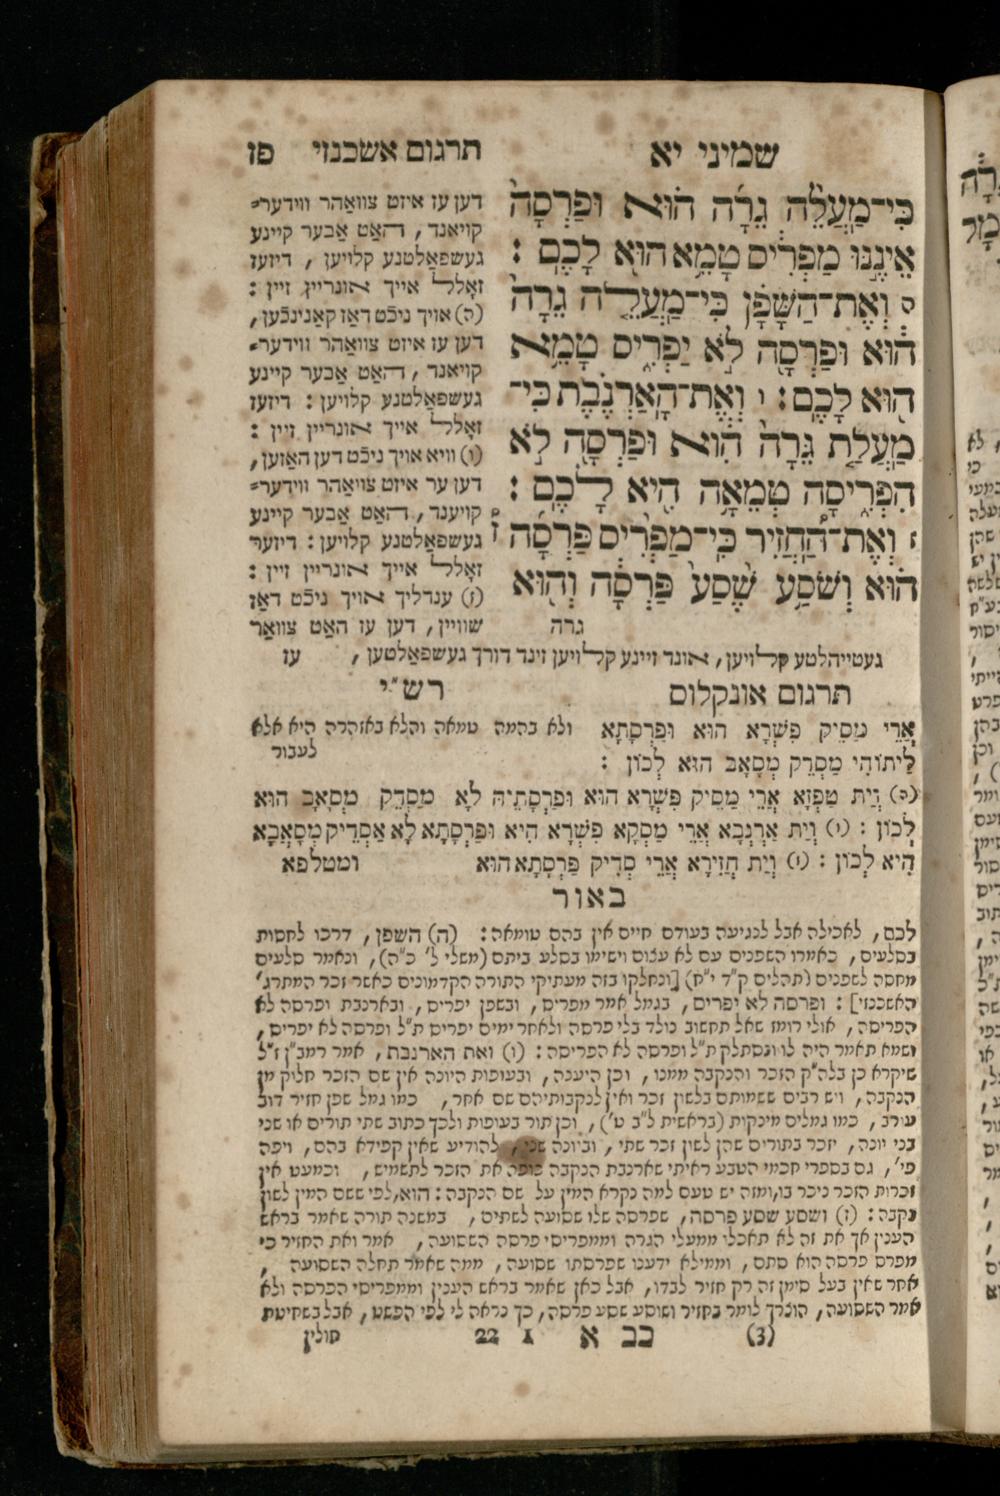 שמיני יא
תרגום אשכנזי פז
כִּי־מַעֲלֵה גֵרָה הוּא וּפַרְסָה
אֵינֶנּוּ מַפְרִיס טָמֵא הוּא לָכֶם :
ה וְאֶת־הַשָּׁפָן כִּי־מַעֲלֵה גֵרָה
הוּא וּפַרְסָה לֹא יַפְרִיס טָמֵא
הוּא לָכֶם : ו וְאֶת־הָאַרְנֶבֶת כִּי־
מַעֲלַת גֵּרָה הִוא וּפַרְסָה לֹא
הִפְרִיסָה טְמֵאָה הִיא לָכֶם :
ז וְאֶת־הַחֲזִיר כִּי־מַפְרִיס פַּרְסָה
הוּא וְשֹׁסַע שֶׁסַע פַּרְסָה וְהוּא
גרה
דען עז איזט צוואַהר ווידער=
קויאנד, האַט אַבער קיינע
געשפאַלטנע קלויען, דיזעז
זאָלל אייך אונריין זיין :
(ה) אויך ניכֿט דאז קאַנינכֿען,
דען עז איזט צוואַהר ווידער=
קויאנד, האַט אַבער קיינע
געשפאַלטנע קלויען : דיזעז
זאָלל אייך אונריין זיין :
(ו) וויא אויך ניכֿט דען האַזען,
דען ער איזט צוואַהר ווידער=
קויענד, האַט אַבער קיינע
געשפאַלטנע קלויען : דיזער
זאָלל אייך אונריין זיין :
(ז) ענדליך אויך ניכֿט דאז
שוויין, דען עז האַט צוואַר
געטייהלטע קלויען, אונד זיינע קלויען זינד דורך געשפאַלטען, עז
תרגום אונקלוס
רש״י
אֲרֵי מַסִּיק פִּשְׁרָא הוּא וּפַרְסָתָא
לֵיתוֹהִי מַסְדֵּק מְסָאָב הוּא לְכוֹן :
ולא בהמה טמאה והלא באזהרה היא אלא
לעבור
(ה) וְיָת טַפְזָא אֲרֵי מַסִּיק פִּשְׁרָא הוּא וּפַרְסָתֵיהּ לָא מַסְדֵּק מְסָאָב הוּא
לְכוֹן : (ו) וְיָת אַרְנְבָא אֲרֵי מַסְּקָא פִשְׁרָא הִיא וּפַרְסָתָא לָא אַסְדֵּיק מְסָאֲבָא
הִיא לְכוֹן : (ז) וְיָת חֲזִירָא אֲרֵי סְדִיק פַּרְסָתָא הוּא ומטלפא
באור
לכם, לאכילה אבל לנגיעה בעודם חיים אין בהם טומאה : (ה) השפן, דרכו לחסות
בסלעים, כאמרו השפנים עם לא עצום וישימו בסלע ביתם (משלי ל׳ כ״ה), ונאמר סלעים
מחסה לשפנים (תהלים ק״ד י״ח) [ונחלקו בזה מעתיקי התורה הקדמונים כאשר זכר המתרג׳
האשכנזי] : ופרסה לא יפרים, בגמל אמר מפריס, ובשפן יפריס, ובארנבת ופרסה לא
הפריסה, אולי רומז שאל תחשוב נולד בלי פרסה ולאחר ימים יפריס ת״ל ופרסה לא יפריס,
ושמא תאמר היה לו ונסתלק ת״ל ופרסה לא הפריסה : (ו) ואת הארנבת, אמר רמב״ן ז״ל
שיקרא כן בלה״ק הזכר והנקבה ממנו, וכן היענה, ובעופות היונה אין שם הזכר חלוק מן
הנקבה, ויש רבים ששמותם בלשון זכר ואין לנקבותיהם שם אחר, כמו גמל שפן חזיר דוב
עורב, כמו גמלים מינקות (בראשית ל״ב ט׳), וכן תור בעופות ולכך כתוב שתי תורים או שני
בני יונה, יזכר בתורים שהן לשון זכר שתי, וביונה שני, להודיע שאין קפידא בהם, ויפה
פי׳, גם בספרי חכמי הטבע ראיתי שארנבת הנקבה כופה את הזכר לתשמיש, וכמעט אין
זכרות הזכר ניכר בו, ומזה יש טעם למה נקרא המין על שם הנקבה : הוא, לפי ששם המין לשון
נקבה : (ז) ושסע שסע פרסה, שפרסה שלו שסועה לשתים, במשנה תורה שאמר בראש
הענין אך את זה לא תאכלו ממעלי הגרה וממפריסי פרסה השסועה, אמר ואת החזיר כי
מפרס פרסה הוא סתם, וממילא ידענו שפרסתו שסועה, ממה שאמר תחלה השסועה,
אחר שאין בעל סימן זה רק חזיר לבדו, אבל כאן שאמר בראש הענין וממפריסי הפרסה ולא
אמר השסועה, הוצרך לומר בחזיר ושוסע שסע פרסה, כך נראה לי לפי הפשט, אבל בשחיטת
(3) כב א 1 22 חולין